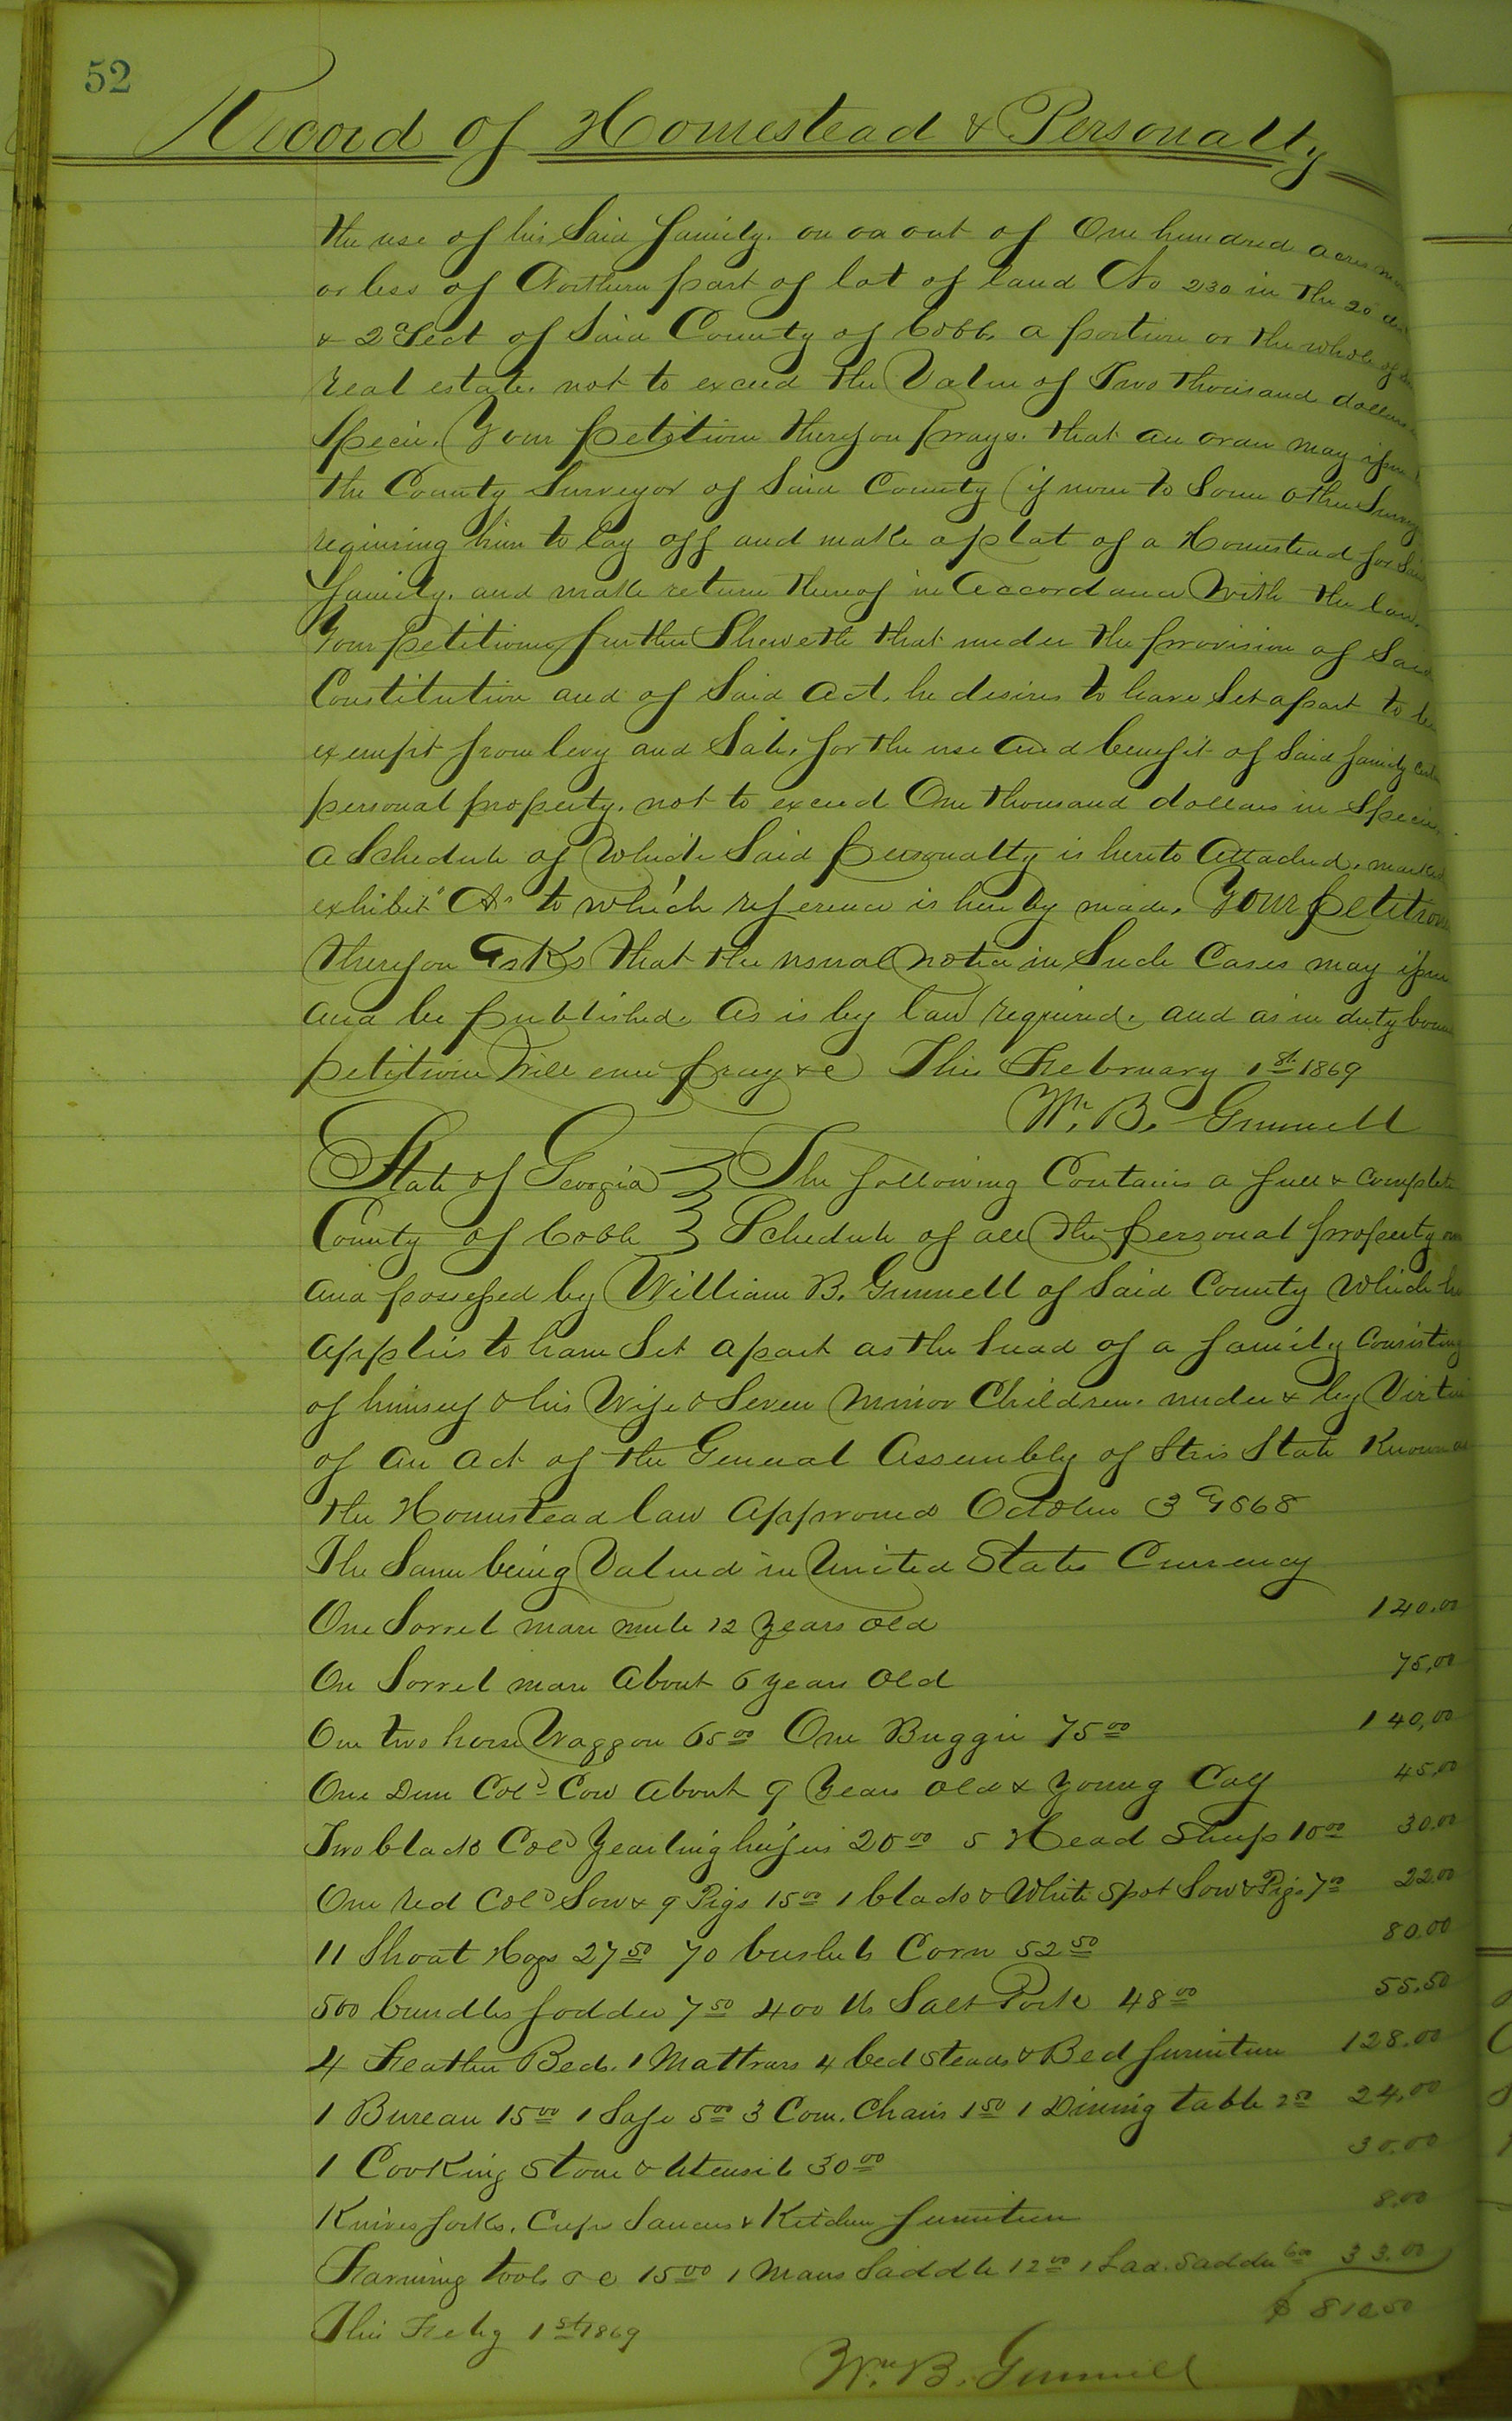 52
Record of Homestead & Personalty
the use of his Said family. on or out of One hundred acres more
or less of Northern part of lot of land No 230 in the 20
& 2d Sect of Said County of Cobb, a portion or the whole of
real estate. not to exceed the Value of Two thousand dollars
Specie. Your petition therefor prays. that an order may issue
the County Surveyor of Said County (if none to Some other
requiring him to lay off and make a plat of a Homestead for Said
family. and make return thereof in accordance With the law.
Your petitioner further Sheweth that under the provision of Said
Constitution and of Said act. he desires to have Set apart to be
exempt from levy and Sale, for the use and benefit of Said family
personal property. not to exceed One thousand dollars in Specie
a Schedule of Which Said personalty is hereto attached. marked
exhibit "A" to which reference is hereby made. Your petition
therefor asks that the usual notice in Such Cases may issue
and be published. as is by law required. and as in duty boun
petition Will ever pray &c This February 1st 1869
Wm. B. Gunnell
State of Georgia } The following Contains a full & Complete
County of Cobb } Schedule of all the personal property
and possessed by William B. Gunnell of Said County Which he
applies to have Set apart as the head of a family Consisting
of himself & his Wife & Seven Minor Children. under & by Virtue
of an act of the General Assembly of this State Known as
the Homestead law Approved October 3d 1868
The Same being Valued in United States Currency
One Sorrel mare mule 12 years old 140.00
On Sorrel mare about 6 years old 75.00
One two horse Waggon 65.00 One Buggie 75.00 140,00
One Dun Cold Cow about 9 Years old & young Calf 45.00
Two black Cold Yearling heifers 20.00 5 Head Sheep 10.00 30.00
One red Cold Sow & 9 Pigs 15.00 1 black & White Spot Sow & Pigs 7.00 22.00
11 Shoat Hogs 27.50 70 bushels Corn 52.50 80.00
500 bundles fodder 7.50 400 lbs Salt Pork 48.00 55.50
4 Feather Beds. 1 Mattrass 4 bed Steads & Bed furniture 128.00
1 Bureau 15.00 1 Safe 5.00 3 Com. Chairs 1.50 1 Dining table 2.50 24,00
1 Cooking Stove & Utensils 30.00 30.00
Knives forks, Cups Saucers & Kitchen furniture 8.00
Farming tools &c 15.00 1 Mans Saddle 12.00 1 Lad. Saddle 6.00 33.00
This Feby 1st 1869 $ 810.50
Wm. B. Gunnell